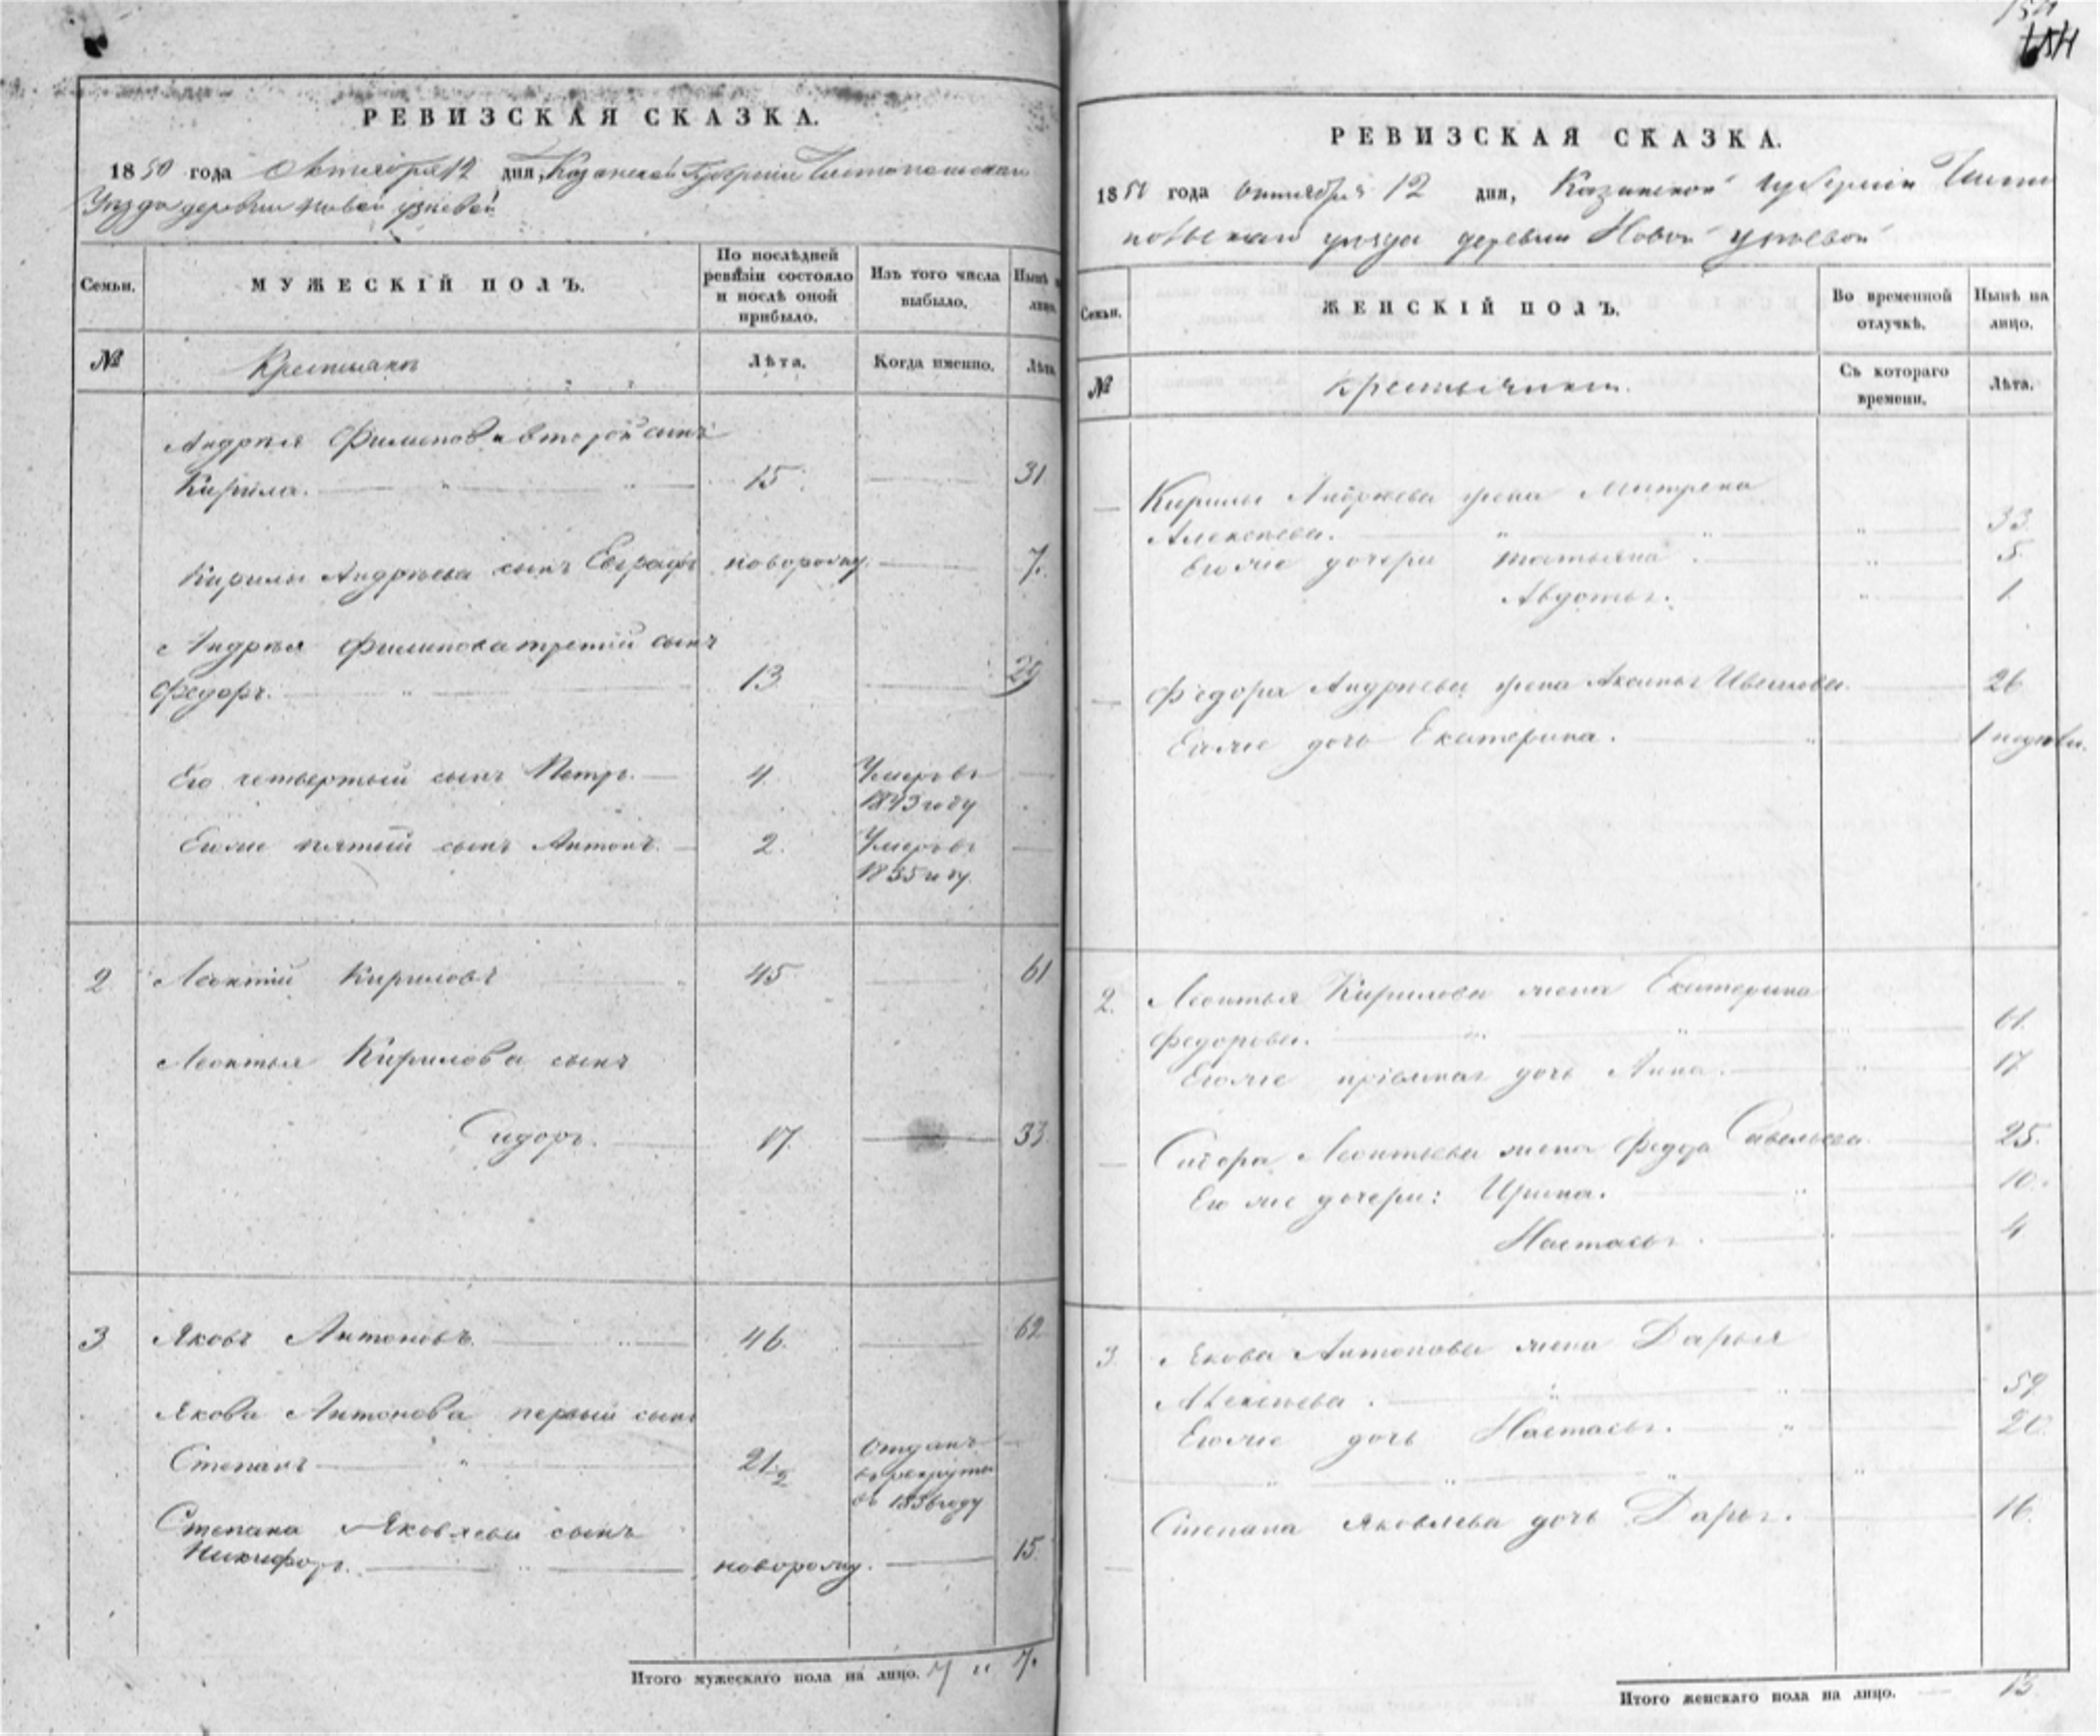 РЕВИЗСКАЯ СКАЗКА.
1850 года Октября 12 дня, Казанской Губернии Чистопольскаго
Уѣзда деревни Новой
Семьи.
МУЖЕСКІЙ ПОЛЪ.
По послѣдней ревизіи состояло и послѣ оной прибыло.
Изъ того числа выбыло.
Нынѣ на лицо.
№
Крестьяне
Лѣта.
Когда именно.
Лѣта.
Андрѣя Филипова второй сынъ
Кирила. 15 31
Кирилы Андрѣева сынъ Евграфъ новорожд. 7.
Андрѣя Филипова третій сынъ
Федоръ. 13 29
Его четвертый сынъ Петръ 4 Умеръ въ
1843 году
Его же пятый сынъ Антонъ. 2. Умеръ въ
1835 году
2 Леонтій Кириловъ 45 61
Леонтья Кирилова сынъ
Сидоръ. 17. 33
3 Яковъ Антоновъ 46. 62
Якова Антонова первый сынъ
Степанъ 21 1/2 Отданъ
въ рекруты
въ 1836 году
Степана Яковлева сынъ
Никифоръ. новорожд. 15.
Итого мужескаго пола на лицо. 7 " 7.
154
РЕВИЗСКАЯ СКАЗКА.
1850 года Октября 12 дня, Казанской Губерніи Чисто
польскаго уѣзда деревни Новой
Семьи.
ЖЕНСКІЙ ПОЛЪ.
Во временной отлучкѣ.
Нынѣ на лицо.
№
Крестьянки.
Съ котораго времени.
Лѣта.
Кирилы Андрѣева жена Матрена
Алексѣева. 33.
Его же дочери Татьяна 5
Авдотья. 1
Федора Андрѣева жена Аксинья Иванова. 26
Его же дочь Екатерина. 1 недѣли.
2. Леонтья Кирилова жена Екатерина
Федорова. 61.
Его же дочь Анна. 17
Сидора Леонтьева жена Савельева 25.
Его же дочери: Ирина. 10.
Настасья. 4
3. Якова Антонова жена Дарья
Алексѣева. 59.
Его же дочь Настасья. 20.
Степана Яковлева дочь Дарья. 16.
Итого женскаго пола на лицо. 13